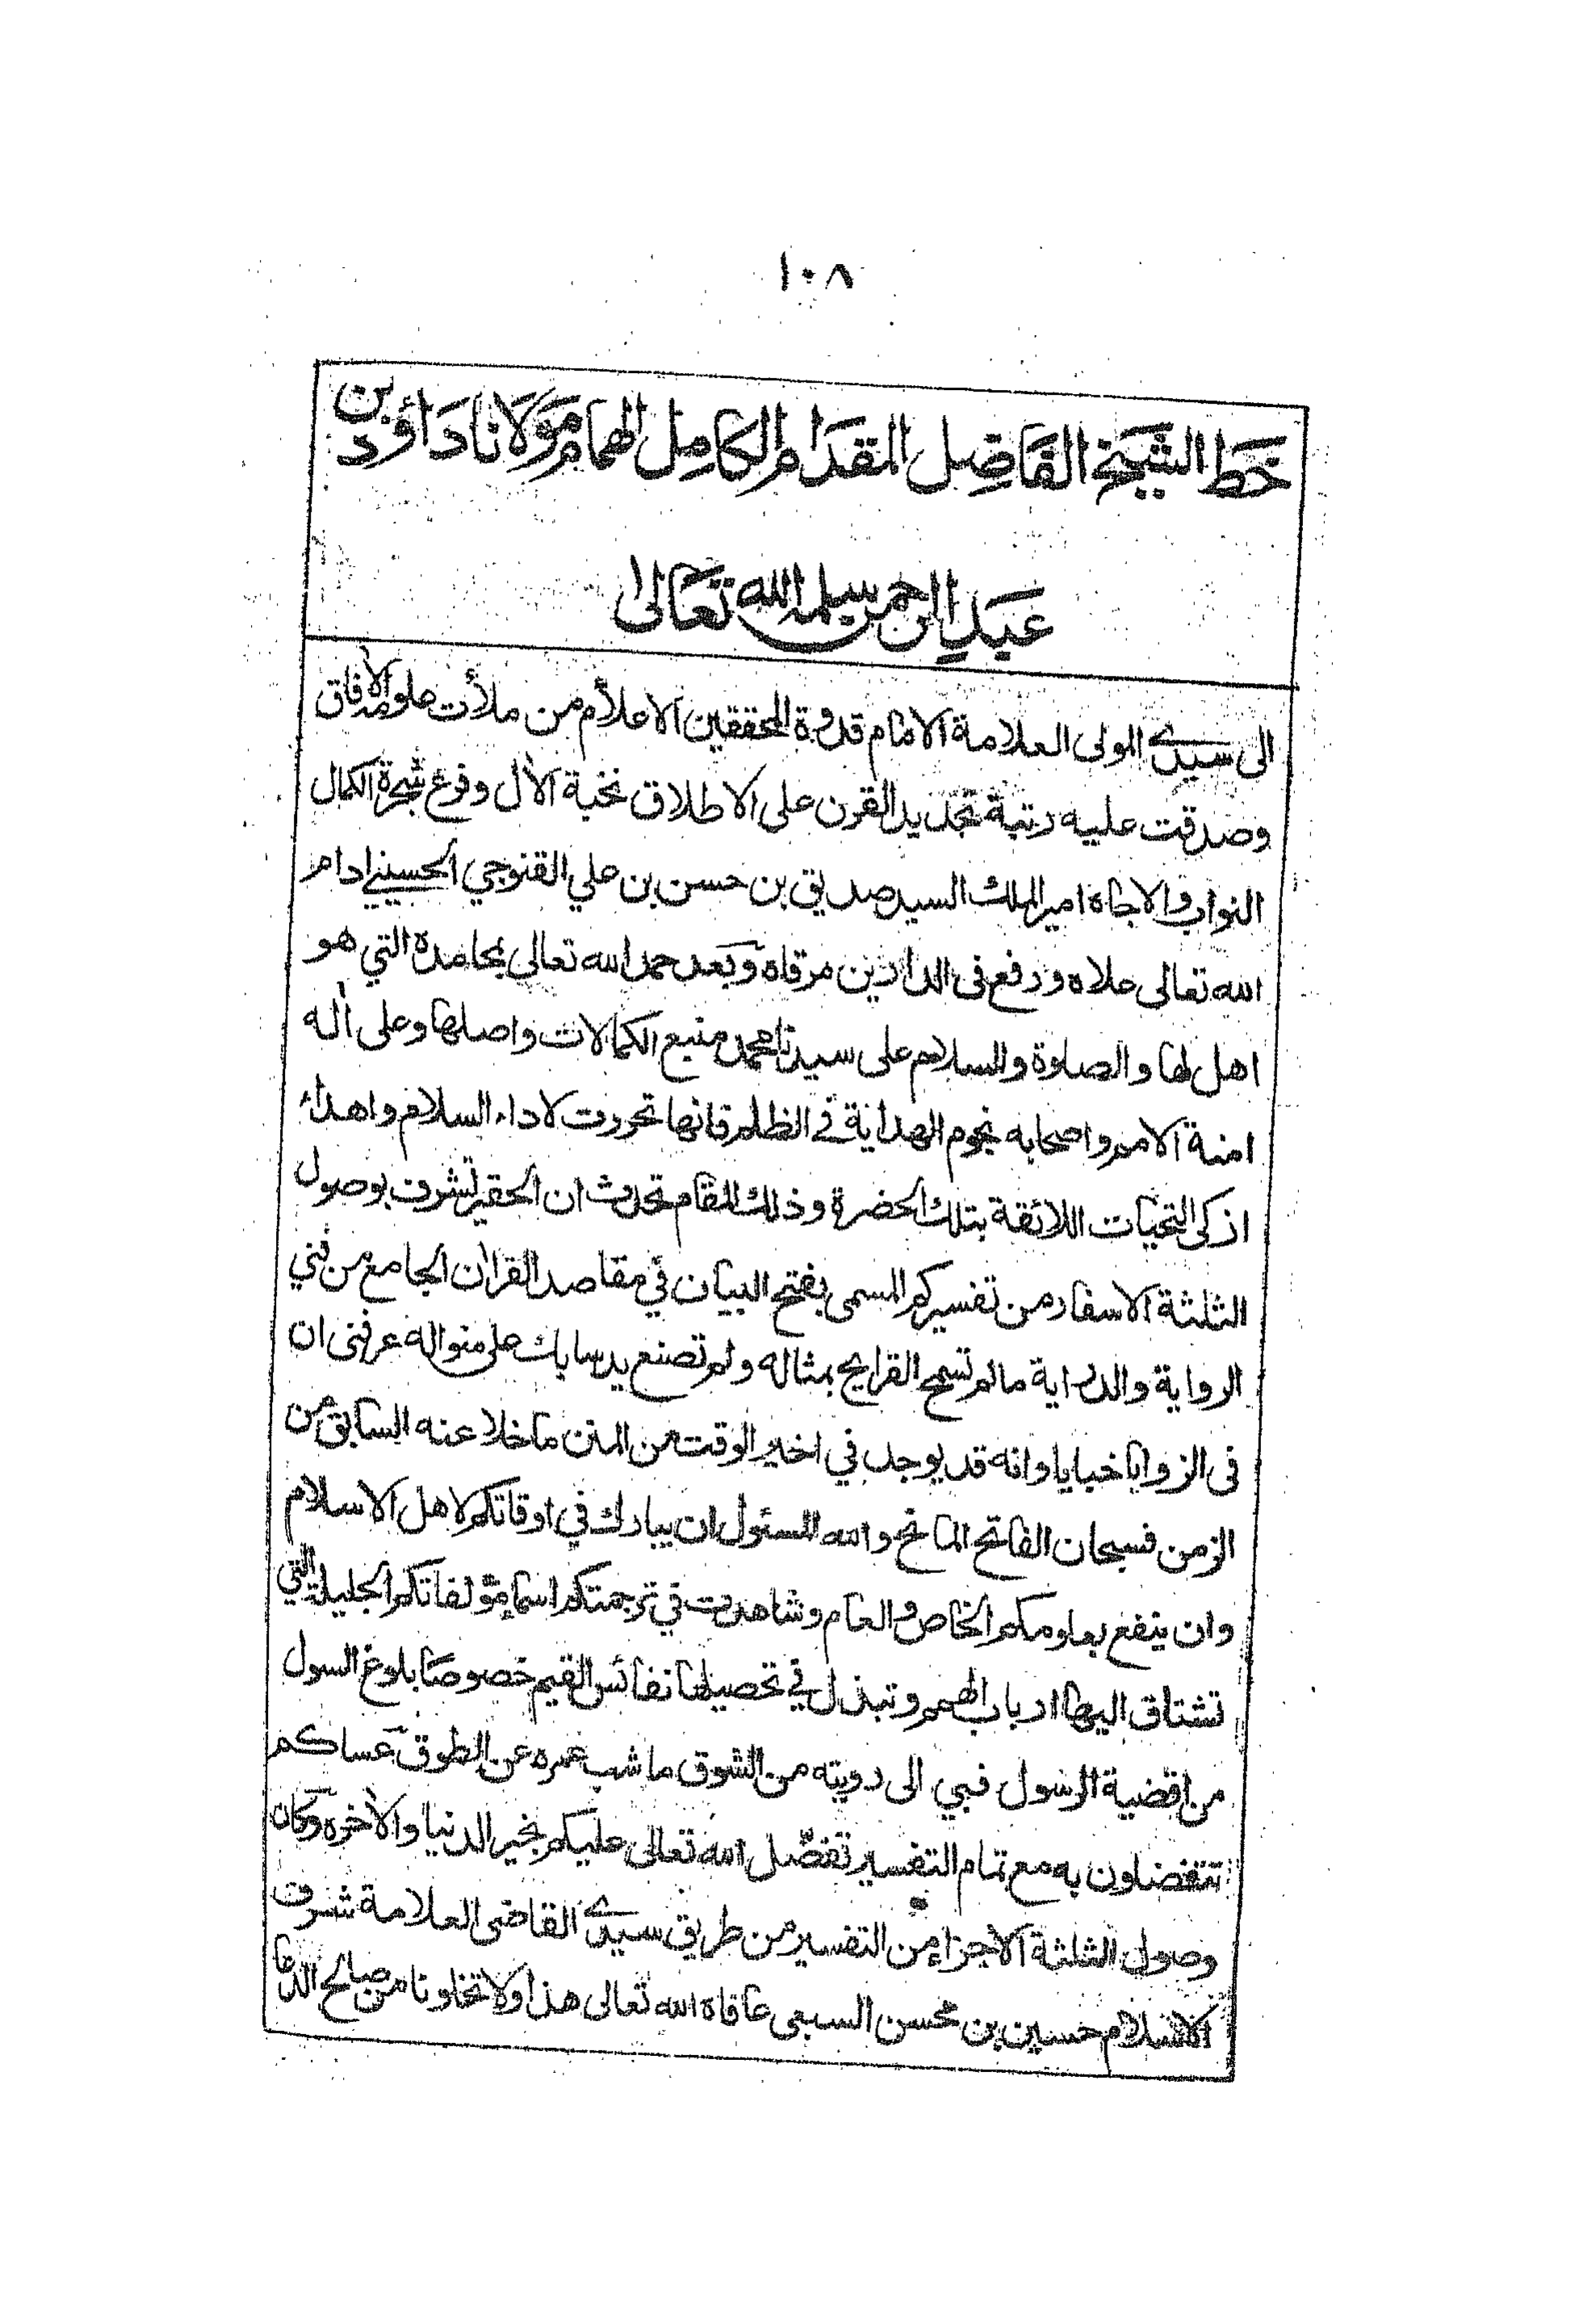 ١٠٨
خط الشيخ الفاضل المقدام الكامل الهمام مولانا داؤد بن
عبد الرحمن سلمه الله تعالى
الى سيدي المولى العلامة الامام قدوة المحققين الاعلام من ملأت علومه الآفاق
وصدقت عليه رتبة تجديد القرن على الاطلاق نخبة الآل وفرع شجرة الكمال
النواب والاجاه امير الملك السيد صديق بن حسن بن علي القنوجي الحسيني ادام
الله تعالى علاه ورفع في الدارين مرقاه وبعد حمد الله تعالى بمحامده التي هو
اهل لها والصلوة والسلام على سيدنا محمد منبع الكمالات واصلها وعلى آله
امنة الامم واصحابه نجوم الهداية في الظلم فانها تحررت لاداء السلام واهداء
ازكى التحيات اللائقة بتلك الحضرة وذلك المقام تحدوث ان الحقير تشرف بوصول
الثلثة الاسفار من تفسيركم المسمى بفتح البيان في مقاصد القرآن الجامع من فني
الرواية والدراية ما لم تسمح القرايح بمثاله ولم تصنع يد سابك على منواله عرفنى ان
فى الزوايا خبايا وانه قد يوجد في اخير الوقت من المنن ما خلا عنه السابق من
الزمن فسبحان الفاتح المانح والله المسئول ان يبارك في اوقاتكم لاهل الاسلام
وان ينفع بعلومكم الخاص والعام وشاهدت في ترجمتكم اسماء مؤلفاتكم الجليلة التي
تشتاق اليها ارباب الهمم وتبذل في تحصيلها نفائس القيم خصوصا بلوغ السول
من اقضية الرسول فبي الى رويته من الشوق ما شب عمره عن الطوق عساكم
تتفضلون به مع تمام التفسير تفضّل الله تعالى عليكم بخير الدنيا والآخره وكان
وصول الثلثة الاجزاء من التفسير من طريق سيدي القاضى العلامة شرف
الاسلام حسين بن محسن السبعى عافاه الله تعالى هذا ولا تخلونا من صالح الدعا